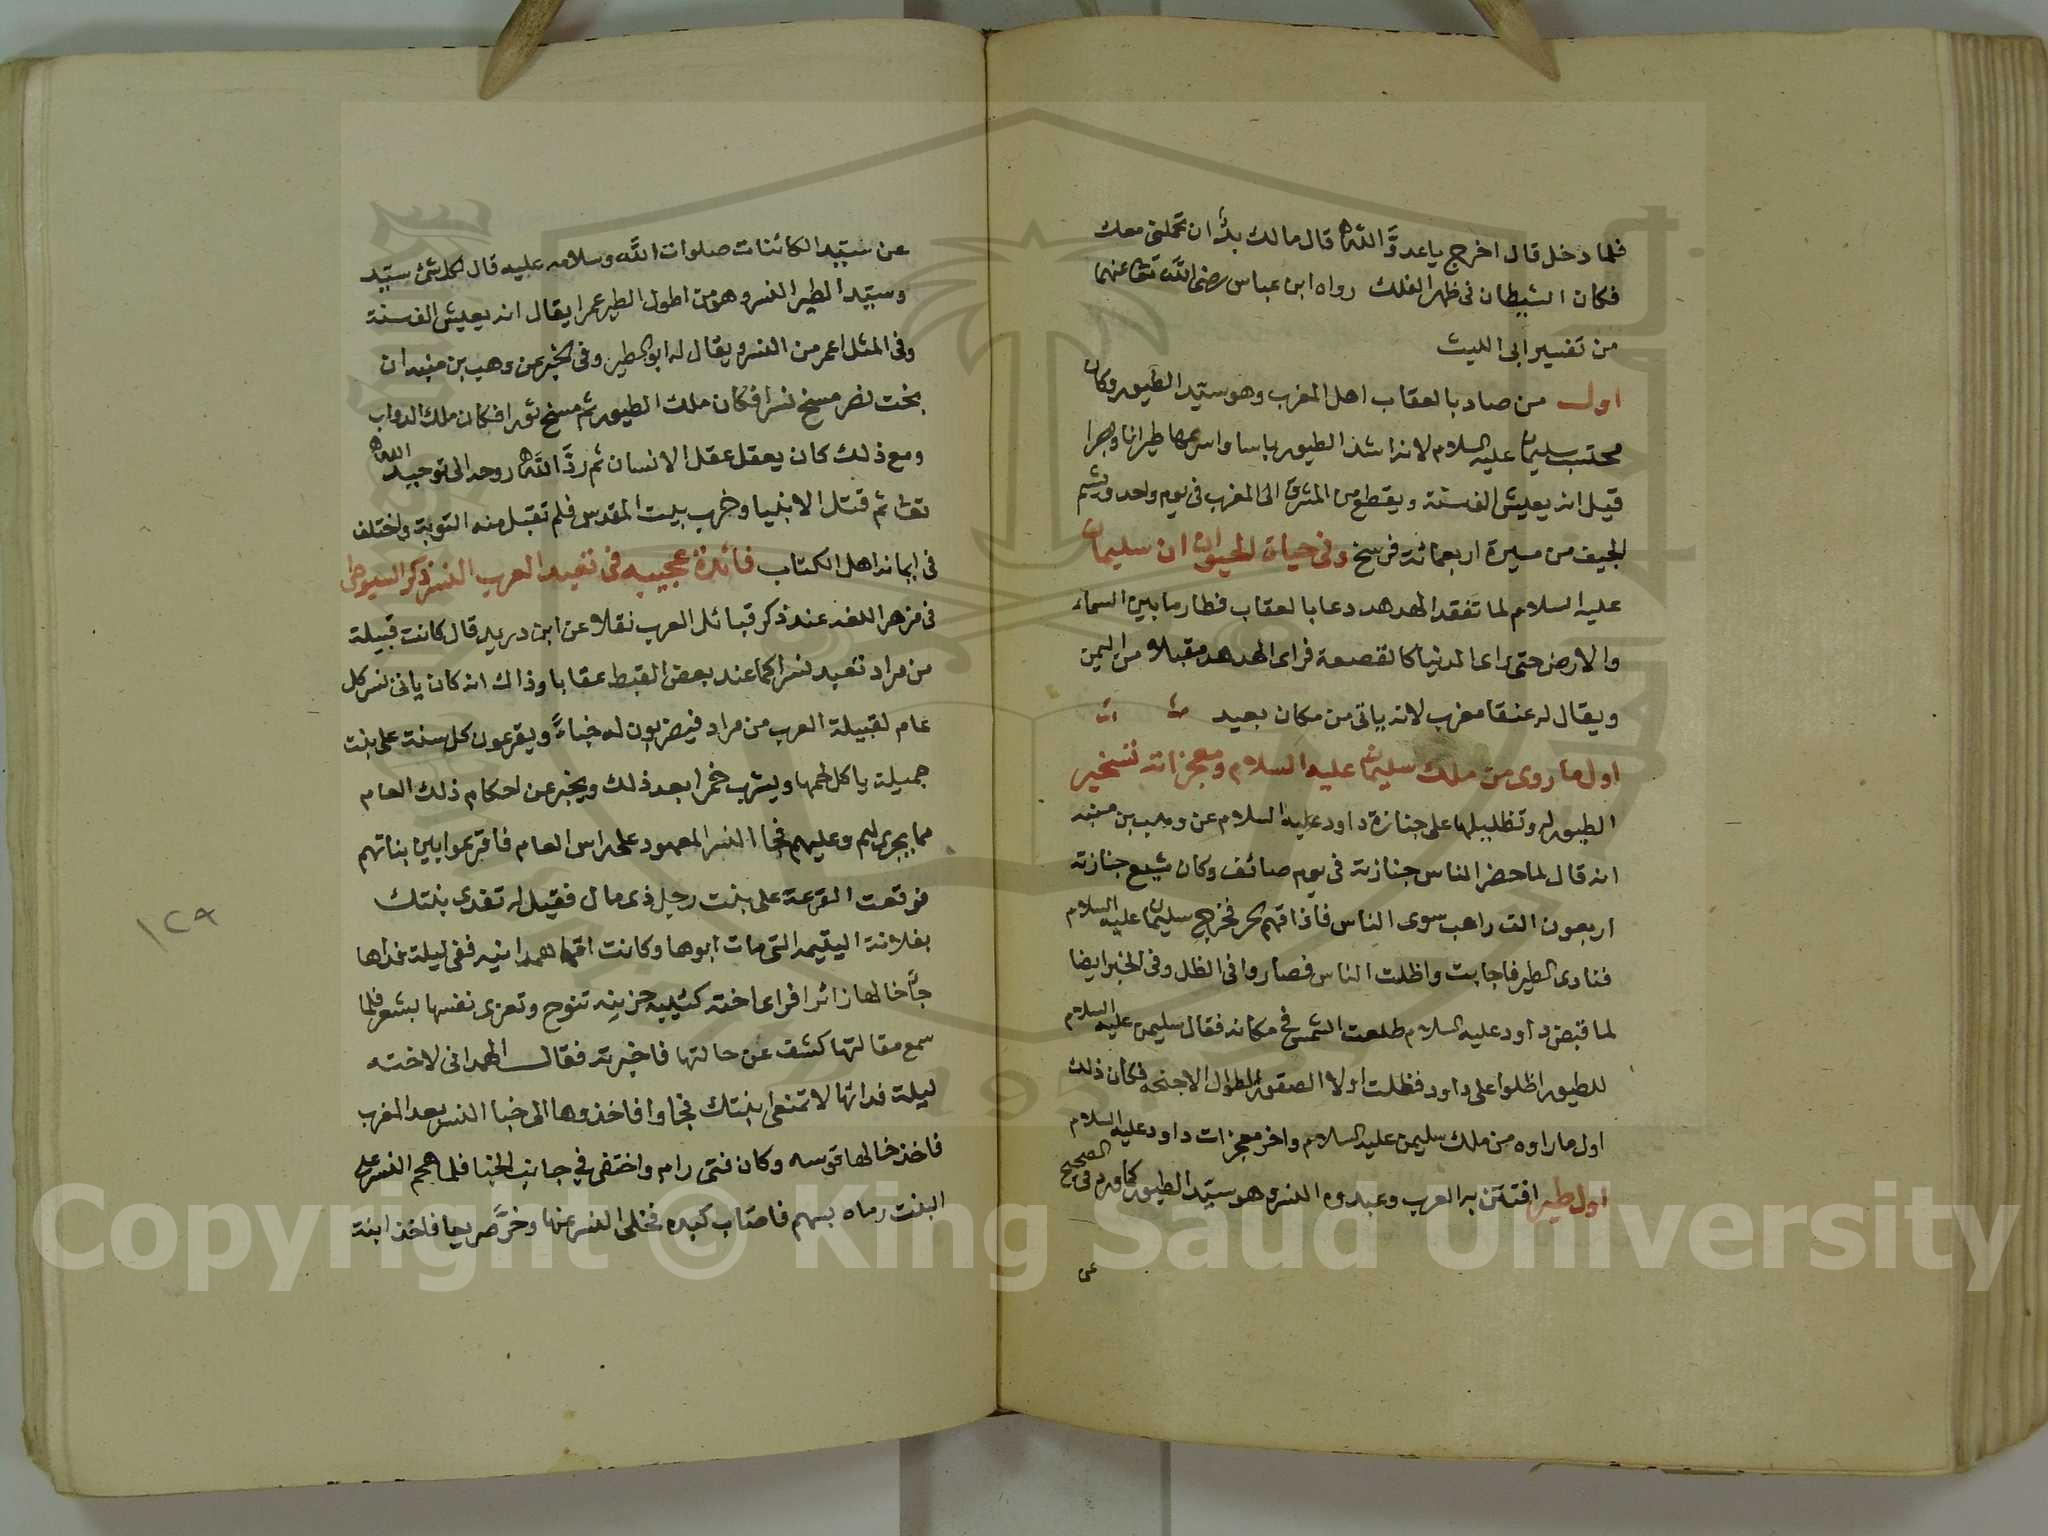 فلما دخل قال اخرج يا عدوَّ اللّه قال مالك بدٌّ ان تحملني معك
فكان الشيطان في ظهر الفلك رواه ابن عباس رضى اللّه تعا عنهما
من تفسير ابى الليث
اول من صاد بالعقاب اهل المغرب وهو سيّد الطيور وكان
محتسب سليمان عليه السلام لانه اشد الطيور باسا واسرعها طيرانا وبصرا
قيل انه يعيش الف سنة ويقطع من المشرق الى المغرب في يوم واحد ويشم
الجيف من مسيرة اربعمائة فرسخ وفى حياة الحيوان ان سليمان
عليه السلام لما تفقد الهدهد دعا بالعقاب فطار ما بين السماء
والارض حتى راى الدنيا كالقصعة فراى الهدهد مقبلا من اليمن
ويقال له عنقا مغرب لانه ياتى من مكان بعيد
اول ما روى من ملك سليمان عليه السلام ومعجزاته تسخير
الطيور له وتظليلها على جنازة داود عليه السلام عن وهب بن منبه
انه قال لما حضر الناس جنازته في يوم صائف وكان شيع جنازته
اربعون الف راهب سوى الناس فآذاهم الحر فخرج سليمان عليه السلام
فنادى الطير فاجابت واظلت الناس فصاروا فى الظل وفى الخبر ايضا
لما قبض داود عليه السلام طلعت الشمس في مكانه فقال سليمن عليه السلام
للطيور اظلوا على داود فظلت اولا الصقور الطوال الاجنحه فكان ذلك
اول ما راوه من ملك سليمن عليه السلام واخر معجزات داود عليه السلام
اول طير افتتن به العرب وعبدوه النسر وهو سيّد الطيور كما ورد فى الصحيح
عن
عن سيّد الكائنات صلوات اللّه وسلامه عليه قال لكل شئ سيّد
وسيّد الطير النسر وهو من اطول الطير عمرا يقال انه يعيش الف سنة
وفى المثل اعمر من النسر ويقال له ابو الطير وفى الخبر عن وهب بن منبه ان
بخت نصر مسخ نسرا فكان ملك الطيور ثم مسخ ثورا فكان ملك الدواب
ومع ذلك كان يعقل عقل الانسان ثم ردَّ اللّه روحه الى توحيد اللّه
تعا ثم قتل الانبيا وخرب بيت المقدس فلم تقبل منه التوبة واختلف
فى ايمانه اهل الكتاب فائدة عجيبه فى تعبد العرب النسر ذكر السيوطى
فى مزهر اللغه عند ذكر قبائل العرب نقلا عن ابن دريد قال كانت قبيلة
من مراد تعبد نسرا كما عند بعض القبط عقابا وذلك انه كان ياتى نسر كل
عام لقبيلة العرب من مراد فيضربون له خباءً ويقرعون كل سنة على بنت
جميلة ياكل لحمها ويشرب خمرا بعد ذلك ويخبر عن احكام ذلك العام
مما يجرى لهم وعليهم فجا النسر المعهود على راس العام فاقرعوا بين بناتهم
فوقعت القرعة على بنت رجل ذى مال فقيل له تفدى بنتك
بفلانة اليتيمه التى مات ابوها وكانت امّها همدانيه ففى ليلة غداها
جآ خالها زائرا فراى اخته كئيبه حزينه تنوح وتعزى نفسها بشعر فلما
سمع مقالتها كشف عن حالتها فاخبرته فقال الهمدانى لاخته
ليلة فدائها لا تمنعى ابنتك فجاوا فاخذوها الى خبا النسر بعد المغرب
فاخذ خالها قوسه وكان فتى رام واختفى في جانب الخبا فلما هجم النسر على
البنت رماه بسهم فاصاب كبده فتخلى النسر عنها وخرَّ صريعا فاخذ ابنة
١٢٩
Copyright © King Saud University